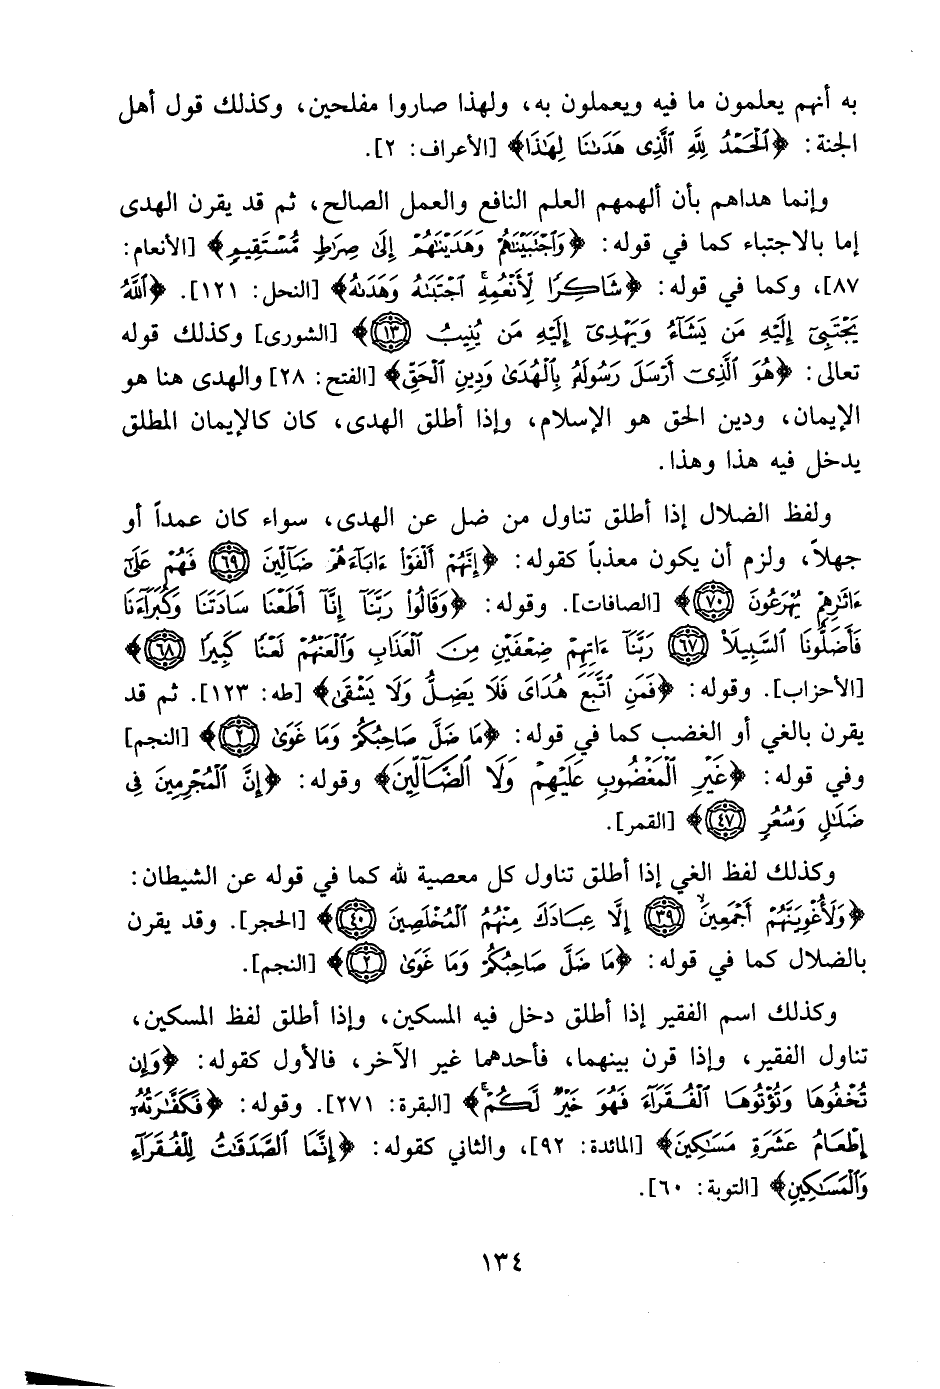 به أنهم يعلمون ما فيه ويعملون به، ولهذا صاروا مفلحين، وكذلك قول أهل
الجنة: ﴿ٱلۡحَمۡدُ لِلَّهِ ٱلَّذِى هَدَىٰنَا لِهَٰذَا﴾ [الأعراف: ٢].
وإنما هداهم بأن ألهمهم العلم النافع والعمل الصالح، ثم قد يقرن الهدى
إما بالاجتباء كما في قوله: ﴿وَٱجۡتَبَيۡنَٰهُمۡ وَهَدَيۡنَٰهُمۡ إِلَىٰ صِرَٰطٖ مُّسۡتَقِيمٖ﴾ [الأنعام:
٨٧]، وكما في قوله: ﴿شَاكِرٗا لِّأَنۡعُمِهِۚ ٱجۡتَبَىٰهُ وَهَدَىٰهُ﴾ [النحل: ١٢١]. ﴿ٱللَّهُ
يَجۡتَبِىٓ إِلَيۡهِ مَن يَشَآءُ وَيَهۡدِىٓ إِلَيۡهِ مَن يُنِيبُ ١٣﴾ [الشورى] وكذلك قوله
تعالى: ﴿هُوَ ٱلَّذِىٓ أَرۡسَلَ رَسُولَهُۥ بِٱلۡهُدَىٰ وَدِينِ ٱلۡحَقِّ﴾ [الفتح: ٢٨] والهدى هنا هو
الإيمان، ودين الحق هو الإسلام، وإذا أطلق الهدى، كان كالإيمان المطلق
يدخل فيه هذا وهذا.
ولفظ الضلال إذا أطلق تناول من ضل عن الهدى، سواء كان عمداً أو
جهلاً، ولزم أن يكون معذباً كقوله: ﴿إِنَّهُمۡ أَلۡفَوۡاْ ءَابَآءَهُمۡ ضَآلِّينَ ٦٩ فَهُمۡ عَلَىٰٓ
ءَاثَٰرِهِمۡ يُهۡرَعُونَ ٧٠﴾ [الصافات]. وقوله: ﴿وَقَالُواْ رَبَّنَآ إِنَّآ أَطَعۡنَا سَادَتَنَا وَكُبَرَآءَنَا
فَأَضَلُّونَا ٱلسَّبِيلَا۠ ٦٧ رَبَّنَآ ءَاتِهِمۡ ضِعۡفَيۡنِ مِنَ ٱلۡعَذَابِ وَٱلۡعَنۡهُمۡ لَعۡنٗا كَبِيرٗا ٦٨﴾
[الأحزاب]. وقوله: ﴿فَمَنِ ٱتَّبَعَ هُدَاىَ فَلَا يَضِلُّ وَلَا يَشۡقَىٰ﴾ [طه: ١٢٣]. ثم قد
يقرن بالغي أو الغضب كما في قوله: ﴿مَا ضَلَّ صَاحِبُكُمۡ وَمَا غَوَىٰ ٢﴾ [النجم]
وفي قوله: ﴿غَيۡرِ ٱلۡمَغۡضُوبِ عَلَيۡهِمۡ وَلَا ٱلضَّآلِّينَ﴾ وقوله: ﴿إِنَّ ٱلۡمُجۡرِمِينَ فِى
ضَلَٰلٖ وَسُعُرٖ ٤٧﴾ [القمر].
وكذلك لفظ الغي إذا أطلق تناول كل معصية لله كما في قوله عن الشيطان:
﴿وَلَأُغۡوِيَنَّهُمۡ أَجۡمَعِينَ ٣٩ إِلَّا عِبَادَكَ مِنۡهُمُ ٱلۡمُخۡلَصِينَ ٤٠﴾ [الحجر]. وقد يقرن
بالضلال كما في قوله: ﴿مَا ضَلَّ صَاحِبُكُمۡ وَمَا غَوَىٰ ٢﴾ [النجم].
وكذلك اسم الفقير إذا أطلق دخل فيه المسكين، وإذا أطلق لفظ المسكين،
تناول الفقير، وإذا قرن بينهما، فأحدهما غير الآخر، فالأول كقوله: ﴿وَإِن
تُخۡفُوهَا وَتُؤۡتُوهَا ٱلۡفُقَرَآءَ فَهُوَ خَيۡرٞ لَّكُمۡۚ﴾ [البقرة: ٢٧١]. وقوله: ﴿فَكَفَّٰرَتُهُۥٓ
إِطۡعَامُ عَشَرَةِ مَسَٰكِينَ﴾ [المائدة: ٩٢]، والثاني كقوله: ﴿إِنَّمَا ٱلصَّدَقَٰتُ لِلۡفُقَرَآءِ
وَٱلۡمَسَٰكِينِ﴾ [التوبة: ٦٠].
١٣٤